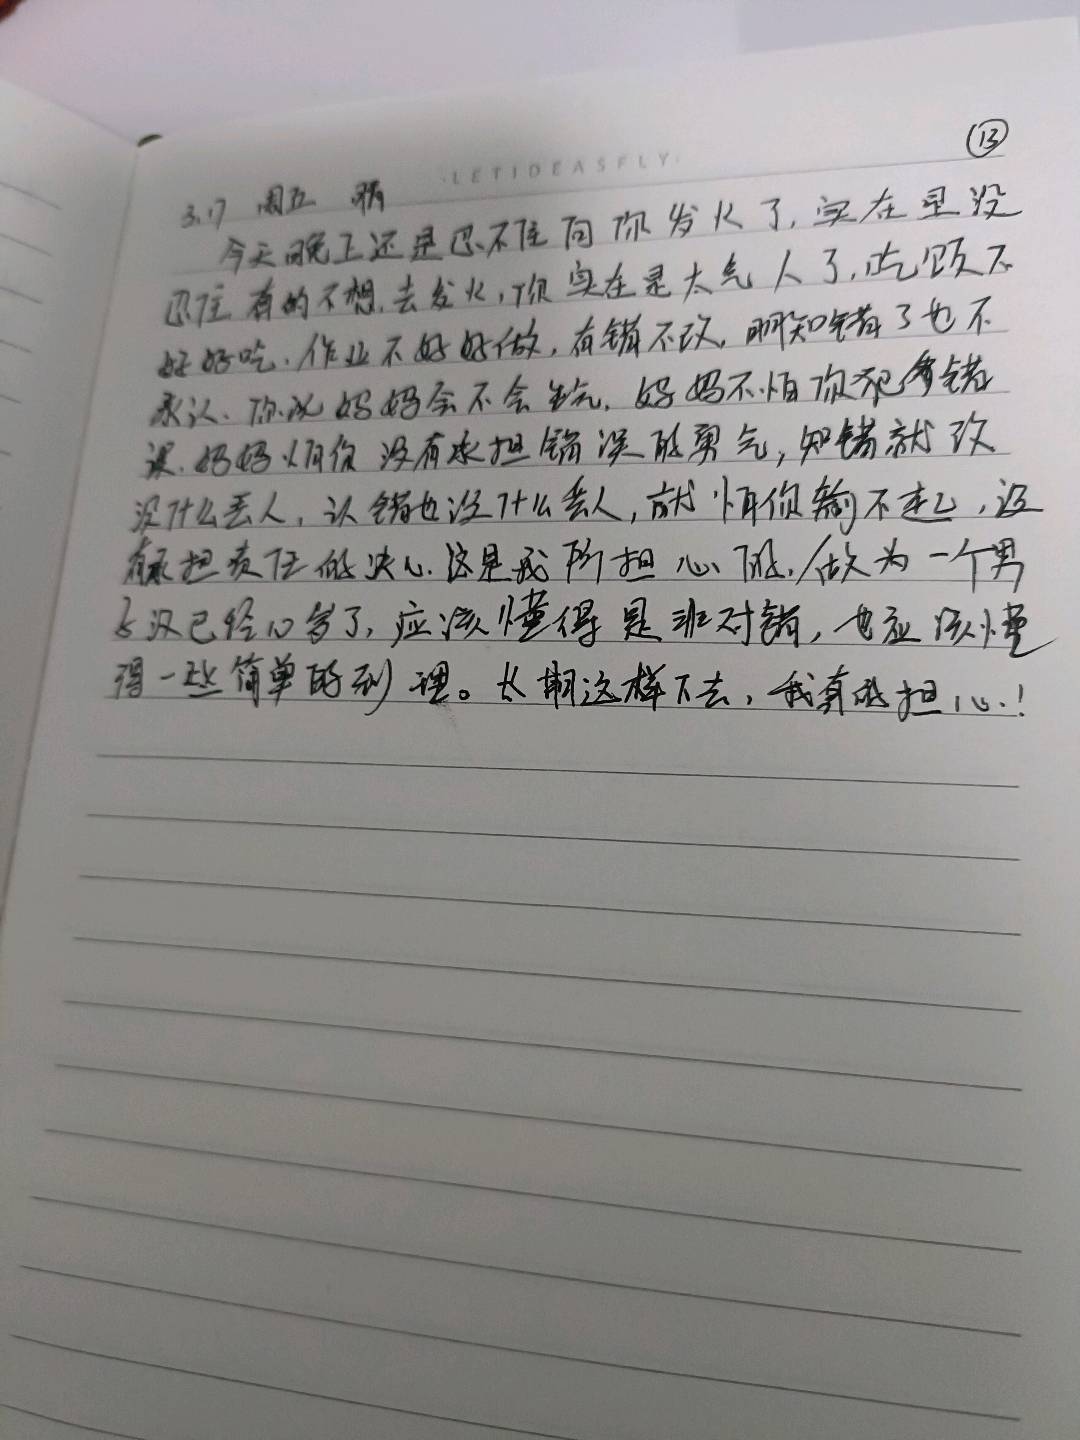 ⑬
·LETIDEASFLY·
3.17 周五 晴
今天晚上还是忍不住向你发火了,实在是没
忍住,有的不想去发火,你实在是太气人了,吃饭不
好好吃、作业不好好做,有错不改,明知错了也不
承认、你说妈妈会不会生气,妈妈不怕你犯多错
误、妈妈怕你没有承担错误的勇气,知错就改
没什么丢人,认错也没什么丢人,就怕你输不起,没
有承担责任的决心.这是我所担心的,做为一个男
子汉已经10多了,应该懂得是非对错,也应该懂
得一些简单的到理。长期这样下去,我真的担心!